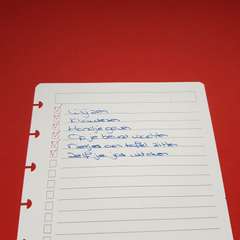 Wijzen
Kleuteren
Handje geven
Op je beurt wachten
Netjes aan tafel zitten
Zelf je jas uitdoen